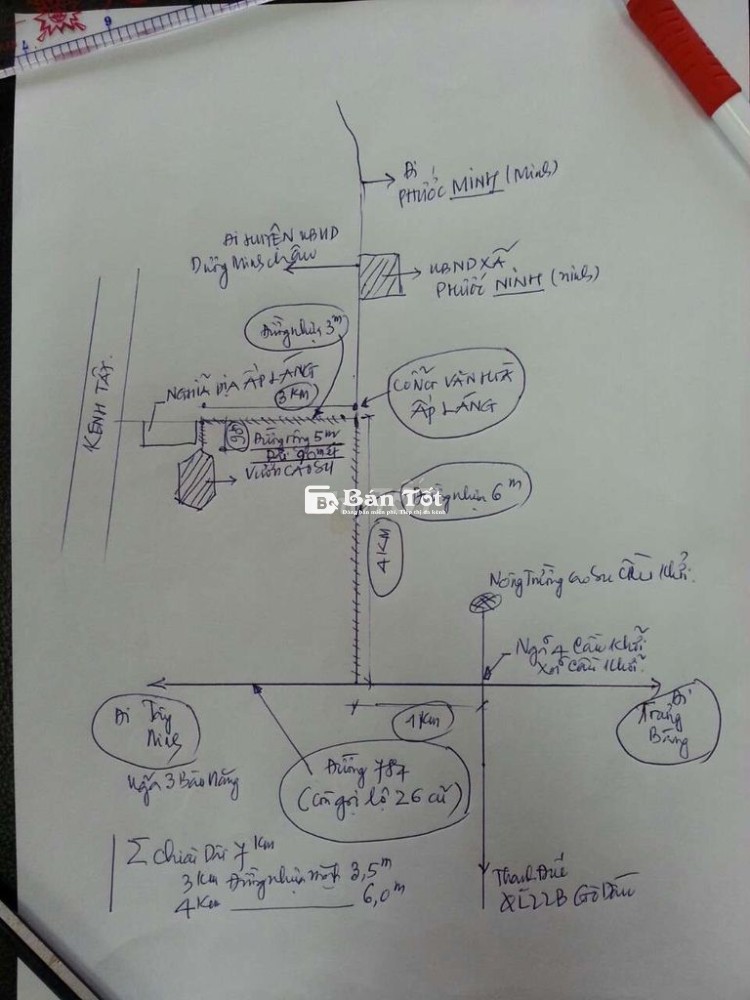 Đi
PHƯỚC MINH (Minh)
Đi HUYỆN UBND
Dương Minh Châu
UBND XÃ
PHƯỚC NINH (ninh)
Đường nhựa 3m
KÊNH TÂY.
NGHĨA ĐỊA ẤP LÁNG
3 KM
CỔNG VĂN HÓA
ẤP LÁNG
Đường rộng 5m
VƯỜN CAO SU
Bán Tốt
Đường nhựa 6m
4 KM
Nông Trường cao su Cầu Khởi.
Ngã 4 Cầu Khởi
Xã Cầu Khởi
Đi Tây
Ninh
Đi
Trảng
Bàng
1 Km
Ngã 3 Bàu Năng
Đường 784
(Còn gọi lộ 26 cũ)
Σ chiều Dài 7 Km
3 Km Đường nhựa 3,5m
4 Km 6,0m
QL22B Gò Dầu